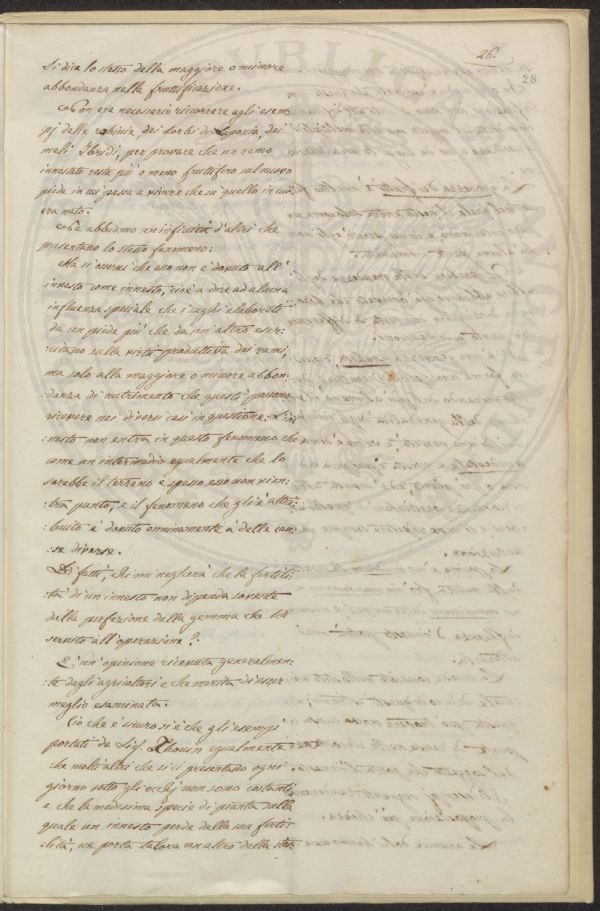 26.
28
Si dica lo stesso della maggiore o minore
abbondanza nella fruttificazione.
Non era necessario ricorrere agli esem
pj della robinia, dei Sorbi di Laponia, dei
meli Ibridi, per provare che un ramo
innestato resta più o meno fruttifero sul nuovo
piede in cui passa a vivere che su quello in cui
era nato.
Noi abbiamo un'infinità d'altri che
presentano lo stesso fenomeno:
Ma si osservi che esso non è dovuto all'
innesto come innesto, cioè a dire ad alcuna
influenza speciale che i sughi elaborati
da un piede più che da un altro eser:
:citano sulla virtù produttiva dei rami,
ma solo alla maggiore o minore abbon:
:danza di nutrimento che questi possono
ricevere nei diversi casi in questione. L'in:
:nesto non entra in questo fenomeno che
come un intermedio egualmente che lo
sarebbe il terreno e spesso esso non vi en:
:tra punto, e il fenomeno che gli è attri:
:buito è dovuto onninamente a delle cau:
:se diverse.
Di fatti, chi mi negherà che la fertili:
:tà di un innesto non dipenda sovente
dalla perfezione della gemma che ha
servito all'operazione?
È un'opinione ricevuta generalmen:
:te dagli agricoltori e che merita d'esser
meglio esaminata.
Ciò che è sicuro si è che gli esempj
portati da Sig. Thouin egualmente
che molti altri che si ci presentano ogni
giorno sotto gli occhj non sono costanti
e che la medesima specie di pianta sulla
quale un innesto perde della sua ferti:
:lità, ne porta talora un altro della stes: